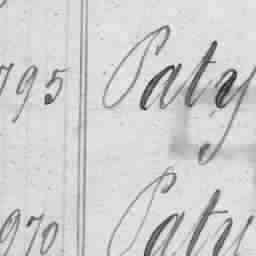 795 Paty
970 Paty